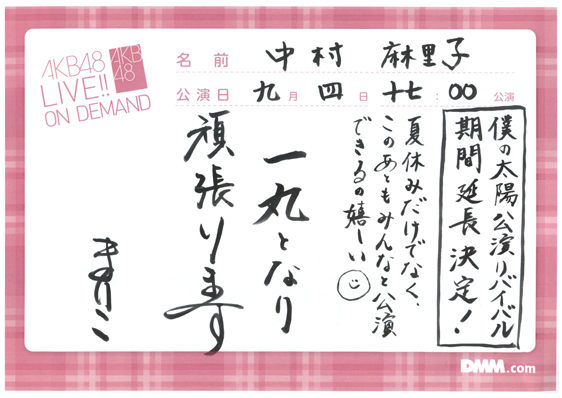 AKB48
LIVE!!
ON DEMAND
AKB
48
名前 中村 麻里子
公演日 九月 四日 十七:00 公演
僕の太陽公演リバイバル
期間延長決定!
夏休みだけでなく、
このあともみんなと公演
できるの嬉しい
一丸となり
頑張ります
まりこ
DMM.com